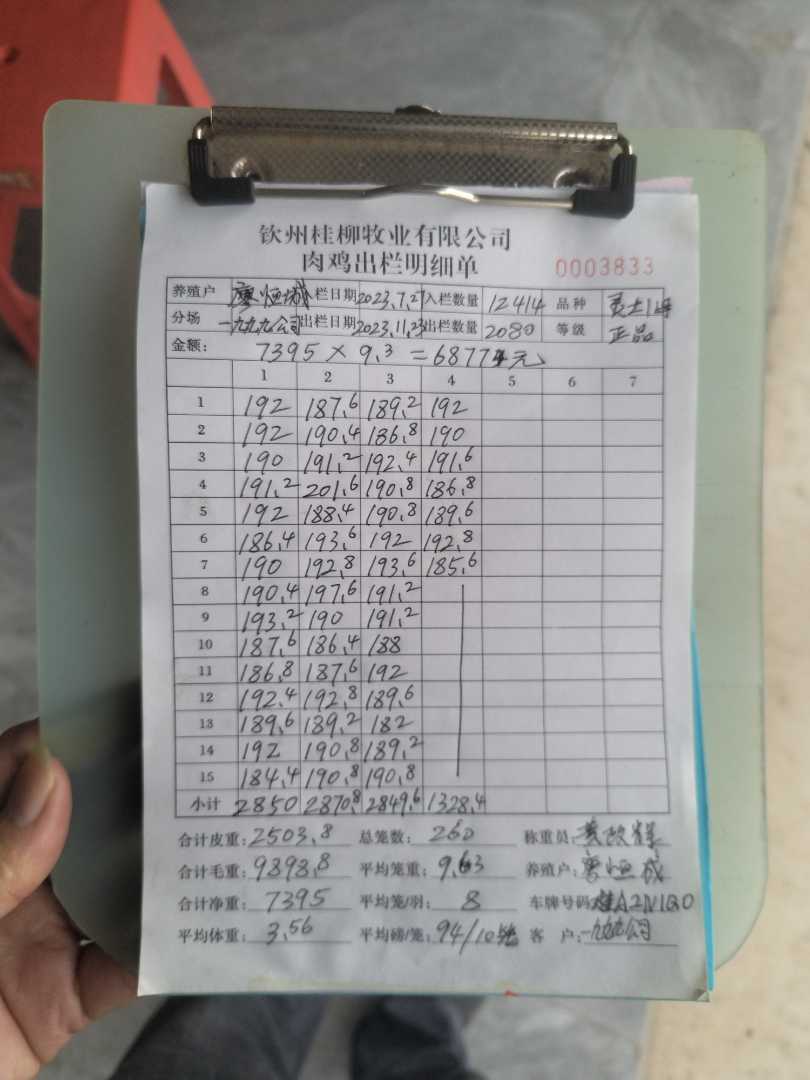 钦州桂柳牧业有限公司
肉鸡出栏明细单 0003833
养殖户 廖恒城 入栏日期 2023.7.27 入栏数量 12414 品种
分场 一九九九公司 出栏日期 2023.11.23 出栏数量 2080 等级 正品
金额: 7395 × 9.3 = 68774元
1 2 3 4 5 6 7
1 192 187.6 189.2 192
2 192 190.4 186.8 190
3 190 191.2 192.4 191.6
4 191.2 201.6 190.8 186.8
5 192 188.4 190.8 189.6
6 186.4 193.6 192 192.8
7 190 192.8 193.6 185.6
8 190.4 197.6 191.2
9 193.2 190 191.2
10 187.6 186.4 188
11 186.8 187.6 192
12 192.4 192.8 189.6
13 189.6 189.2 182
14 192 190.8 189.2
15 184.4 190.8 190.8
小计 2850 2870.8 2849.6 1328.4
合计皮重: 2503.8 总笼数: 260 称重员:
合计毛重: 9898.8 平均笼重: 9.63 养殖户: 廖恒城
合计净重: 7395 平均笼/羽: 8 车牌号码: 桂A2N1Q0
平均体重: 3.56 平均磅/笼: 94/10笼 客户: 一九九公司